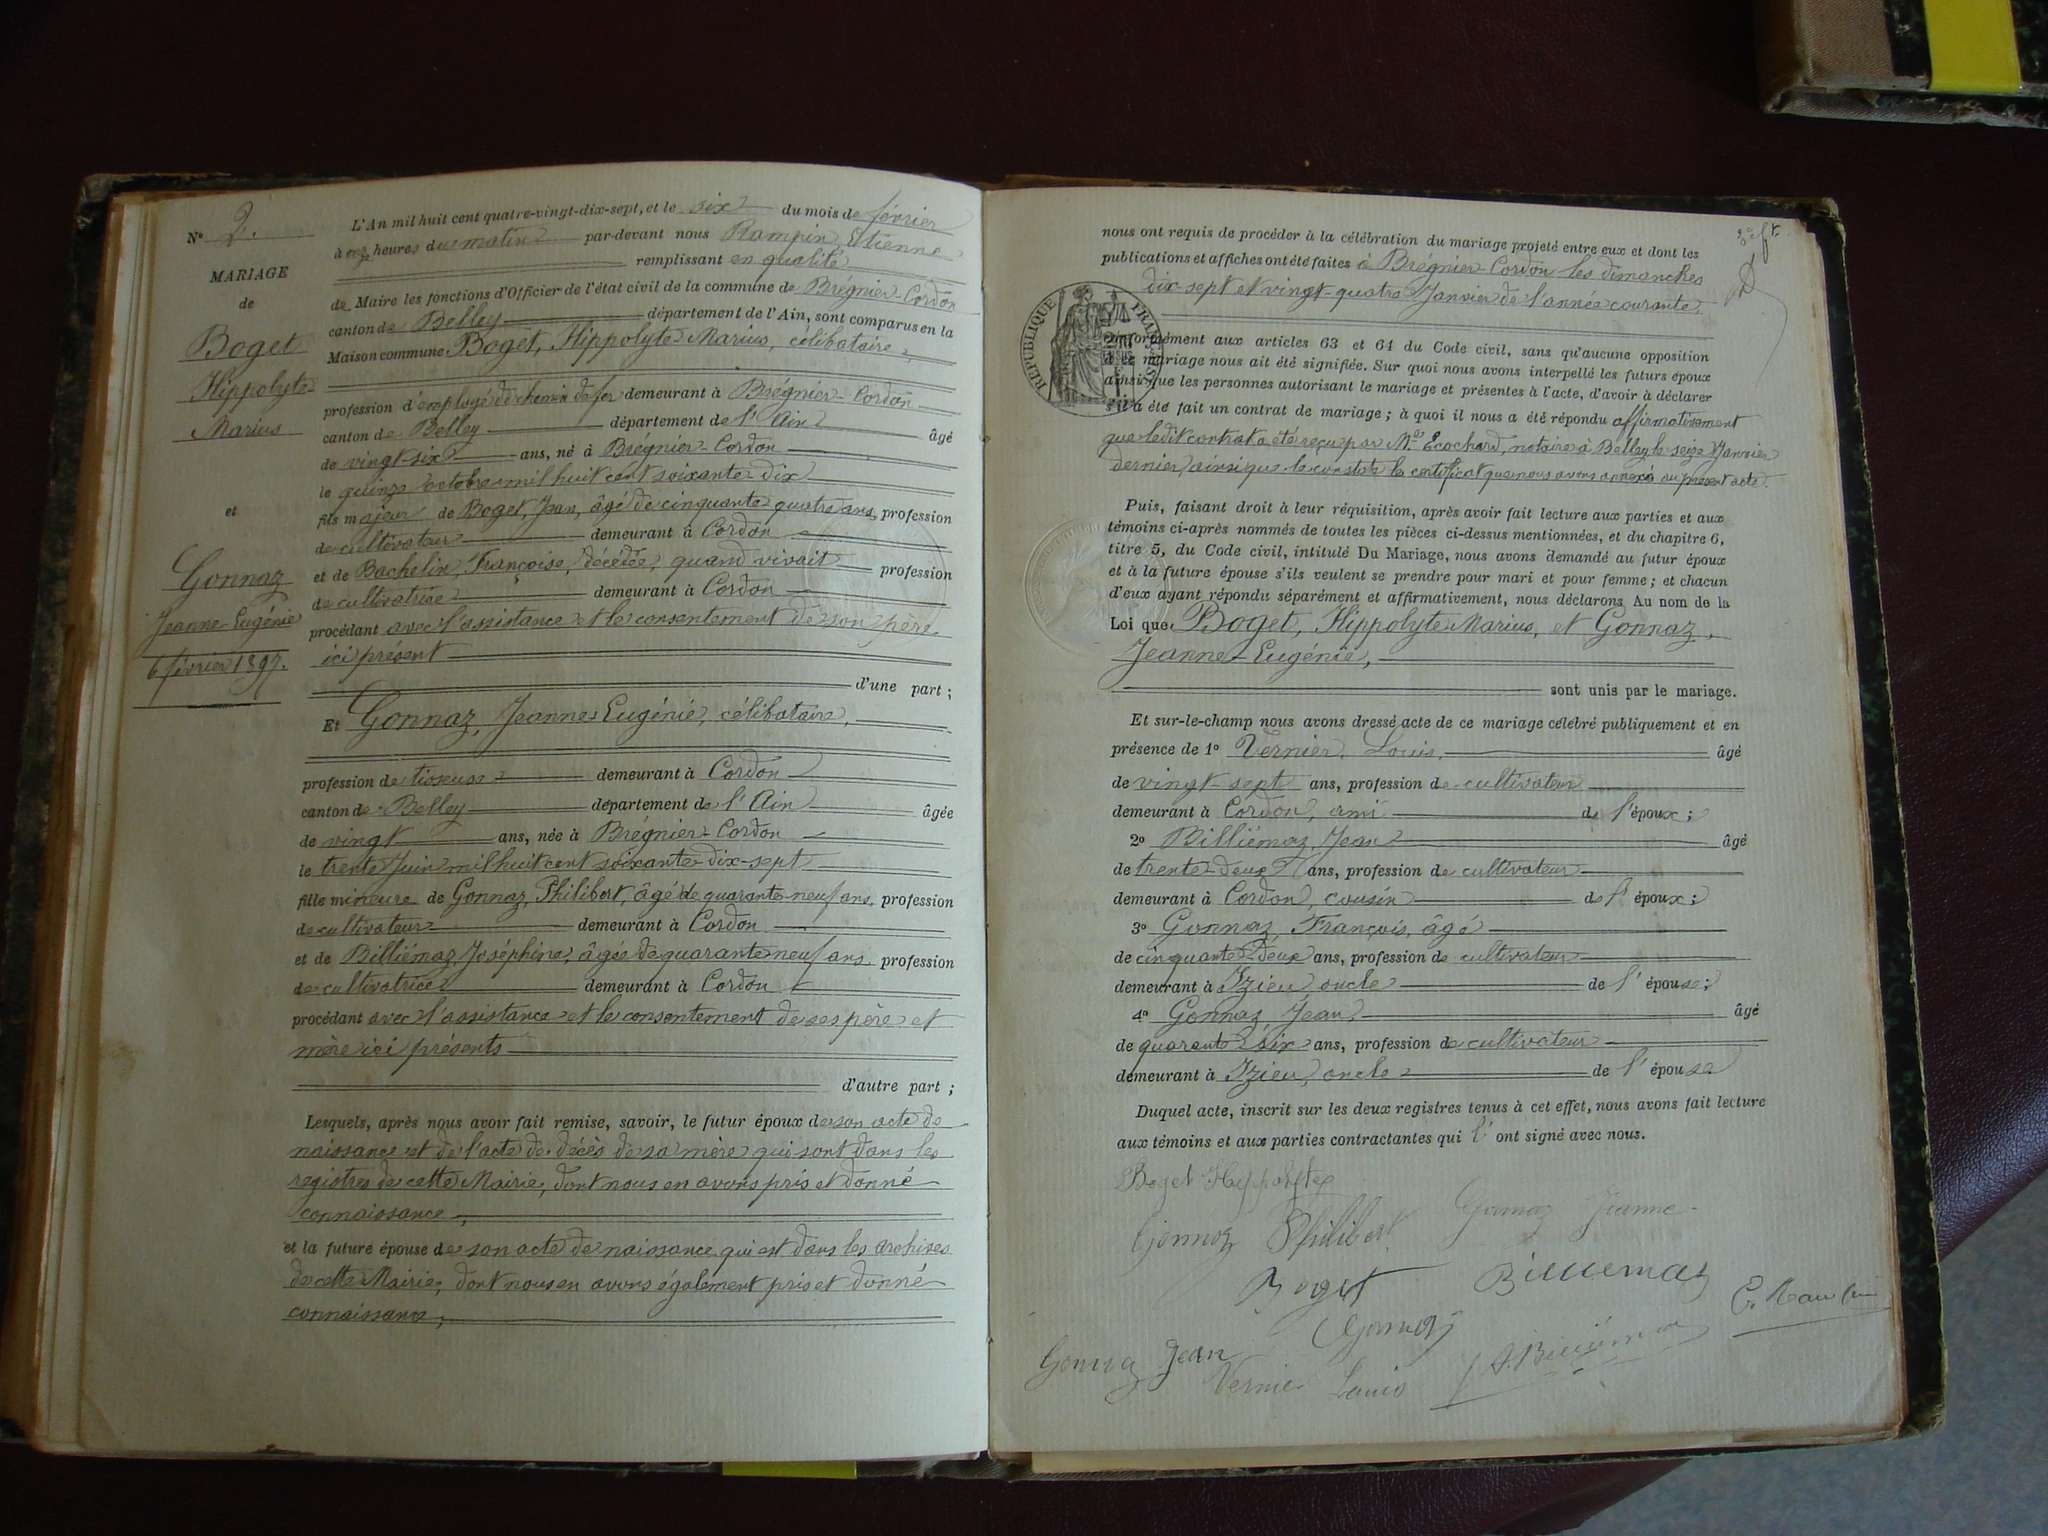 N° 2.
MARIAGE
de
Boget
Hippolyte
Marius
et
Gonnaz
Jeanne-Eugénie
6 février 1897.
L'An mil huit cent quatre-vingt-dix-sept, et le six du mois de février
à onze heures du matin par-devant nous Rampin, Etienne
remplissant en qualité
de Maire les fonctions d'Officier de l'état civil de la commune de Brégnier-Cordon
canton de Belley département de l'Ain, sont comparus en la
Maison commune Boget, Hippolyte Marius, célibataire,
profession d'employé de chemin de fer demeurant à Brégnier-Cordon
canton de Belley département de l'Ain âgé
de vingt-six ans, né à Brégnier-Cordon
le quinze octobre mil huit cent soixante dix
fils majeur de Boget, Jean, âgé de cinquante quatre ans, profession
de cultivateur demeurant à Cordon
et de Bachelin, Françoise, décédée, quand vivait profession
de cultivatrice demeurant à Cordon
procédant avec l'assistance et le consentement de son père
ici présent
d'une part ;
Et Gonnaz, Jeanne Eugénie, célibataire,
profession de tisseuse demeurant à Cordon
canton de Belley département de l'Ain âgée
de vingt ans, née à Brégnier-Cordon
le trente Juin mil huit cent soixante-dix-sept
fille mineure de Gonnaz, Philibert, âgé de quarante neuf ans, profession
de cultivateur demeurant à Cordon
et de Billiémaz Joséphine, âgée de quarante neuf ans profession
de cultivatrice demeurant à Cordon
procédant avec l'assistance et le consentement de ses père et
mère ici présents
d'autre part ;
Lesquels, après nous avoir fait remise, savoir, le futur époux de son acte de
naissance et de l'acte de décès de sa mère qui sont dans les
registres de cette Mairie, dont nous en avons pris et donné
connaissance,
et la future épouse de son acte de naissance qui est dans les archives
de cette Mairie, dont nous en avons également pris et donné
connaissance,
nous ont requis de procéder à la célébration du mariage projeté entre eux et dont les
publications et affiches ont été faites à Brégnier-Cordon les dimanches
dix-sept et vingt-quatre Janvier de l'année courante.
RÉPUBLIQUE FRANÇAISE
conformément aux articles 63 et 64 du Code civil, sans qu'aucune opposition
à ce mariage nous ait été signifiée. Sur quoi nous avons interpellé les futurs époux
ainsi que les personnes autorisant le mariage et présentes à l'acte, d'avoir à déclarer
s'il a été fait un contrat de mariage ; à quoi il nous a été répondu affirmativement
que ledit contrat a été reçu par Me Ecochard, notaire à Belley le seize Janvier
dernier ainsi que le constate le certificat que nous avons annexé au présent acte.
Puis, faisant droit à leur réquisition, après avoir fait lecture aux parties et aux
témoins ci-après nommés de toutes les pièces ci-dessus mentionnées, et du chapitre 6,
titre 5, du Code civil, intitulé Du Mariage, nous avons demandé au futur époux
et à la future épouse s'ils veulent se prendre pour mari et pour femme ; et chacun
d'eux ayant répondu séparément et affirmativement, nous déclarons Au nom de la
Loi que Boget, Hippolyte Marius, et Gonnaz,
Jeanne-Eugénie,
sont unis par le mariage.
Et sur-le-champ nous avons dressé acte de ce mariage célébré publiquement et en
présence de 1° Vernier Louis, âgé
de vingt-sept ans, profession de cultivateur
demeurant à Cordon, ami de l'époux ;
2° Billiémaz, Jean âgé
de trente-deux ans, profession de cultivateur
demeurant à Cordon, cousin de l'époux ;
3° Gonnaz, François, âgé
de cinquante-deux ans, profession de cultivateur
demeurant à Izieu, oncle de l'épouse ;
4° Gonnaz Jean âgé
de quarante six ans, profession de cultivateur
demeurant à Izieu, oncle de l'épouse
Duquel acte, inscrit sur les deux registres tenus à cet effet, nous avons fait lecture
aux témoins et aux parties contractantes qui l'ont signé avec nous.
Boget Hyppolyte
Gonnaz Philibert Gonnaz Jeanne
Boget Billiemaz
Gonnaz
Gonnaz Jean
Vernier Louis